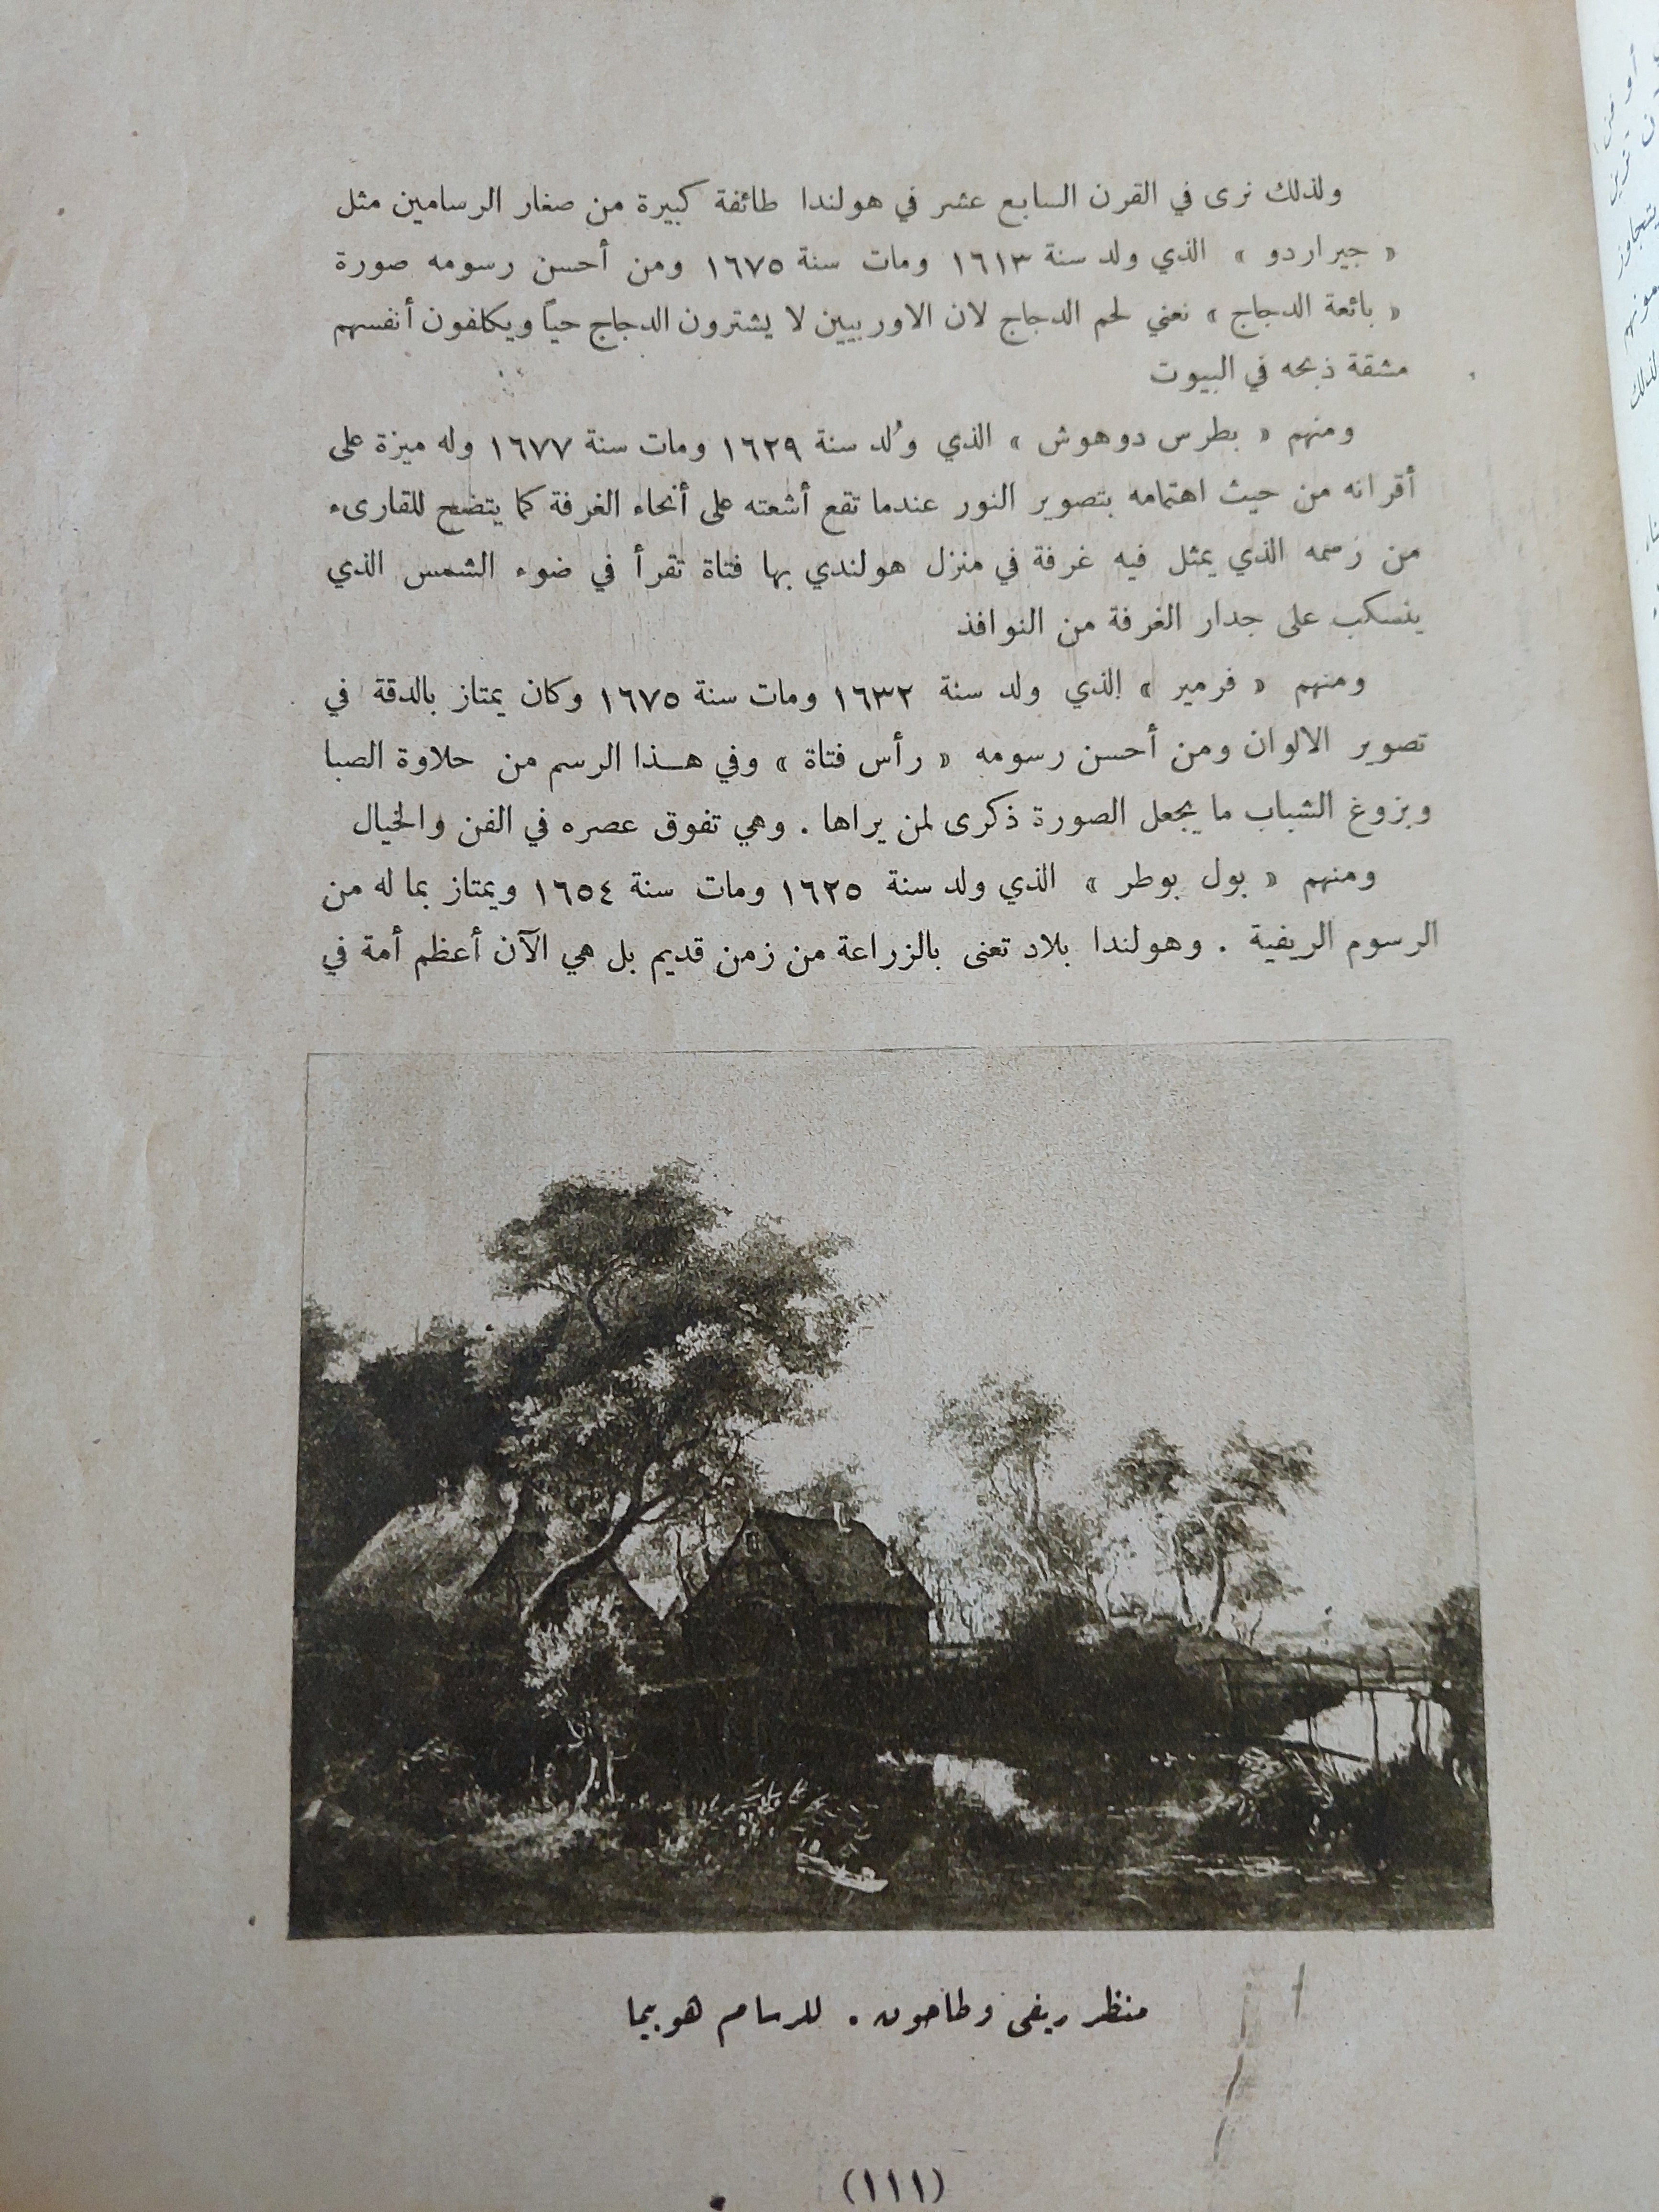 ولذلك نرى في القرن السابع عشر في هولندا طائفة كبيرة من صغار الرسامين مثل
« جيراردو » الذي ولد سنة ١٦١٣ ومات سنة ١٦٧٥ ومن أحسن رسومه صورة
« بائعة الدجاج » نعني لحم الدجاج لان الاوربيين لا يشترون الدجاج حياً ويكلفون أنفسهم
مشقة ذبحه في البيوت
ومنهم « بطرس دوهوش » الذي وُلد سنة ١٦٢٩ ومات سنة ١٦٧٧ وله ميزة على
أقرانه من حيث اهتمامه بتصوير النور عندما تقع أشعته على أنحاء الغرفة كما يتضح للقارىء
من رسمه الذي يمثل فيه غرفة في منزل هولندي بها فتاة تقرأ في ضوء الشمس الذي
ينسكب على جدار الغرفة من النوافذ
ومنهم « فرمير » الذي ولد سنة ١٦٣٢ ومات سنة ١٦٧٥ وكان يمتاز بالدقة في
تصوير الالوان ومن أحسن رسومه « رأس فتاة » وفي هـذا الرسم من حلاوة الصبا
وبزوغ الشباب ما يجعل الصورة ذكرى لمن يراها . وهي تفوق عصره في الفن والخيال
ومنهم « بول بوطر » الذي ولد سنة ١٦٢٥ ومات سنة ١٦٥٤ ويمتاز بما له من
الرسوم الريفية . وهولندا بلاد تعنى بالزراعة من زمن قديم بل هي الآن أعظم أمة في
منظر ريفى وطاحون . للرسام هوبيما
(١١١)